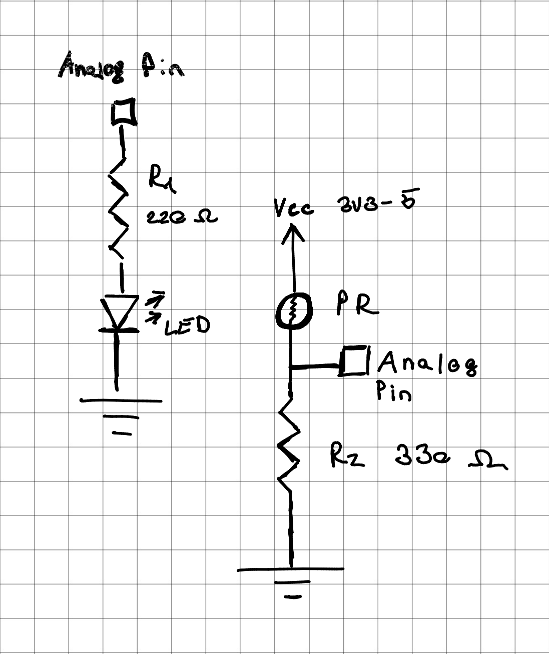 Analog Pin
R1
220 Ω
LED
Vcc 3V3-5
PR
Analog
Pin
R2 330 Ω